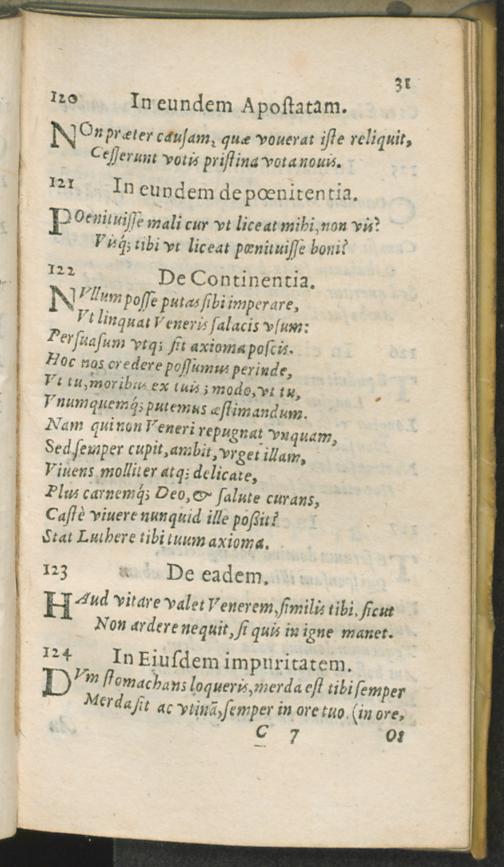 31
120 In eundem Apostatam.
NOn præter causam, quæ voverat iste reliquit,
Cesserunt votis pristina vota novis.
121 In eundem de pœnitentia.
POenituisse mali cur vt liceat mihi, non vis?
Visq; tibi vt liceat pœnituisse boni?
122 De Continentia.
NVllum posse putas sibi imperare,
Vt linquat Veneris salacis vsum:
Persuasum vtq; sit axioma poscis.
Hoc nos credere possumus perinde,
Vt tu, moribus ex tuis; modo, vt tu,
Vnumquemq; putemus æstimandum.
Nam qui non Veneri repugnat vnquam,
Sed semper cupit, ambit, vrget illam,
Viuens molliter atq; delicate,
Plus carnemq; Deo, & salute curans,
Castè viuere nunquid ille poßit?
Stat Luthere tibi tuum axioma.
123 De eadem.
HAud vitare valet Venerem, similis tibi, sicut
Non ardere nequit, si quis in igne manet.
124 In Eiusdem impuritatem.
DVm stomachans loqueris, merda est tibi semper
Merda sit ac vtinã, semper in ore tuo. (in ore,
C 7 Os